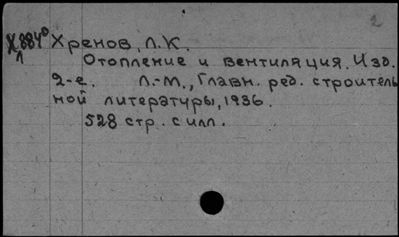 2
Х884⁰ Хренов, Л.К.
Л
Отопление и вентиляция. Изд.
2-е. Л.-М., Главн. ред. строитель
ной литературы, 1936.
528 стр. с илл.